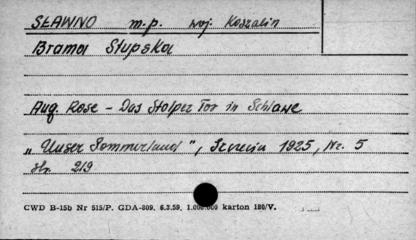 SŁAWNO m.p. woj. Koszalin
Brama Słupska
Aug. Rose - Das Stolper Tor in Schlawe
„Unser Pommerland", Szczecin 1925, Nr. 5
str. 219
CWD B-15b Nr 515/P. GDA-809, 6.3.59, 1.000.000 karton 180/V.